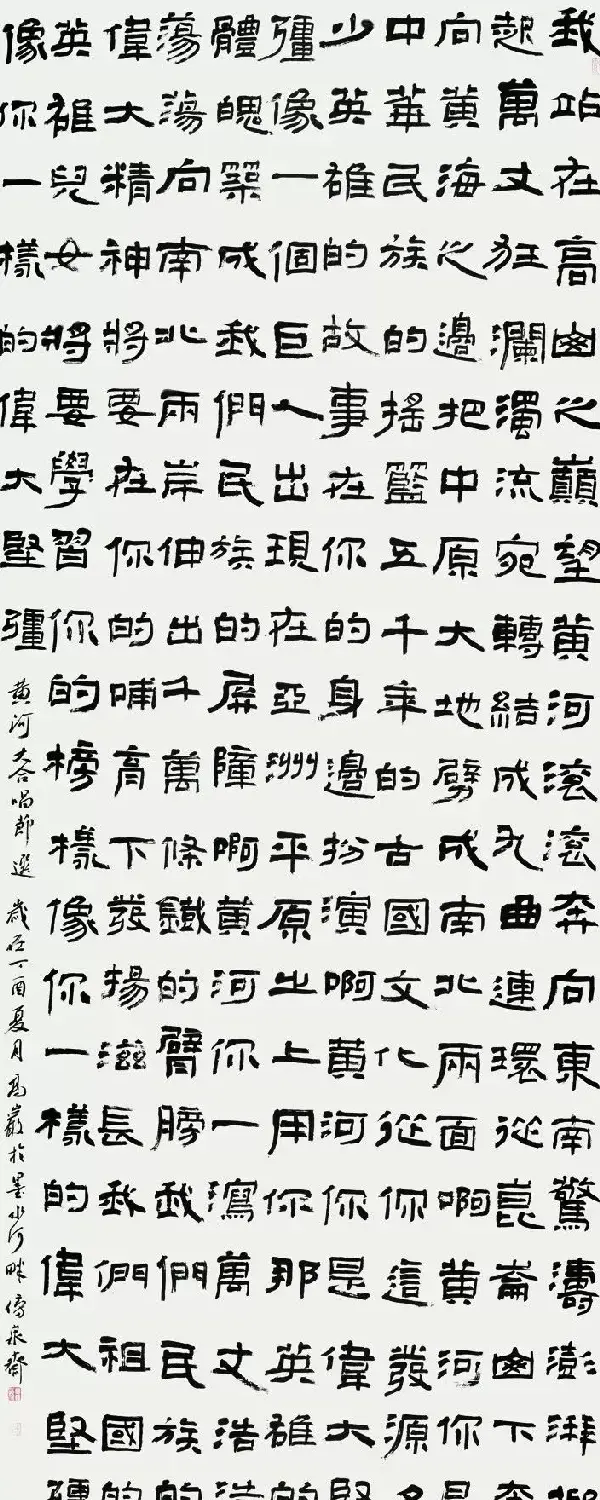 我站在高山之巔望黃河滾滾奔向東南驚濤澎湃掀
起萬丈狂瀾濁流宛轉結成九曲連環從崑崙山下奔
向黃海之邊把中原大地劈成南北兩面啊黃河你是
中華民族的搖籃五千年的古國文化從你這發源多
少英雄的故事在你的身邊扮演啊黃河你是偉大堅
彊像一個巨人出現在亞洲平原之上用你那英雄的
體魄築成我們民族的屏障啊黃河你一瀉萬丈浩浩
蕩蕩向南北兩岸伸出千萬條鐵的臂膀我們民族的
偉大精神將要在你的哺育下發揚滋長我們祖國的
英雄兒女將要學習你的榜樣像你一樣的偉大堅彊
像你一樣的偉大堅彊 黃河大合唱節選 歲在丁酉夏月 巖於墨水河畔傳泉齋